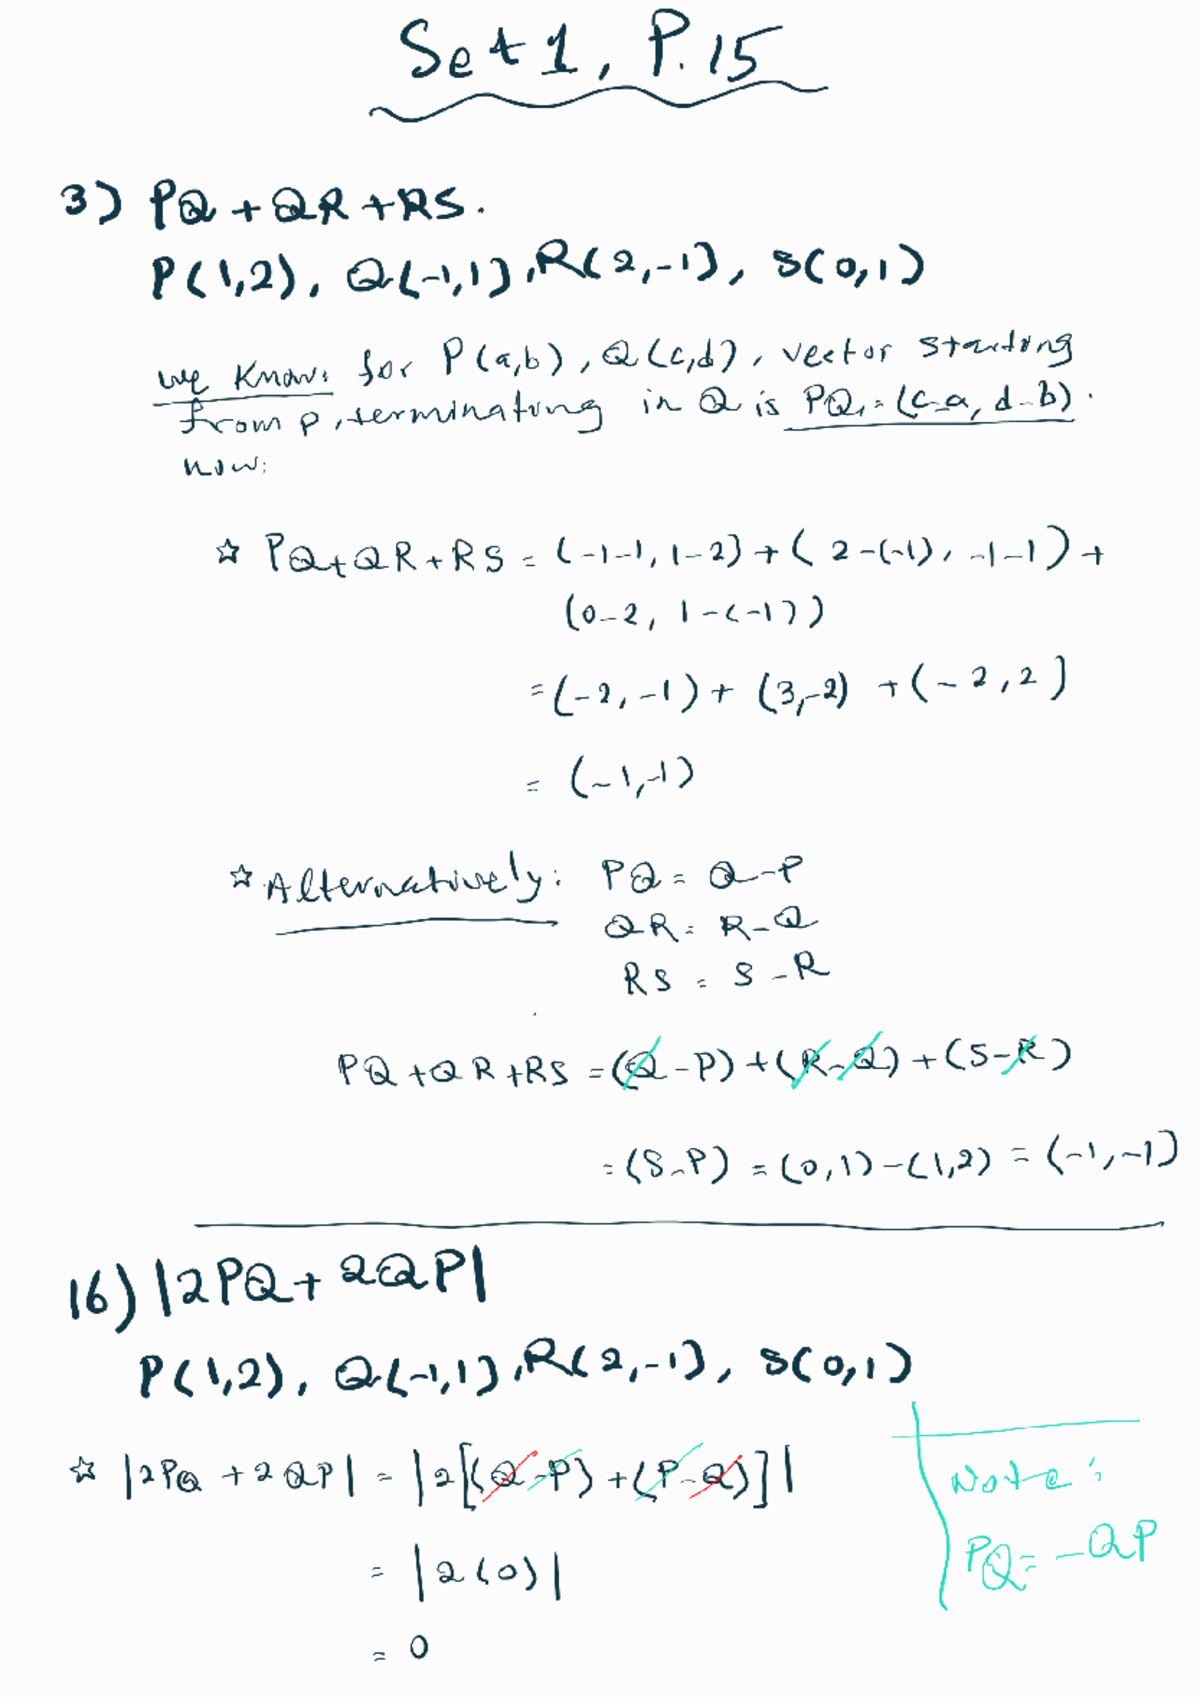 Set 1, P.15
3) PQ + QR + RS.
P(1,2), Q(-1,1), R(2,-1), S(0,1)
we Know: for P(a,b), Q(c,d), vector starting
from P, terminating in Q is PQ = (c-a, d-b).
now:
☆ PQ+QR+RS = (-1-1, 1-2) + (2-(-1), -1-1) +
(0-2, 1-(-1))
= (-2, -1) + (3,-2) + (-2, 2)
= (-1,-1)
☆ Alternatively: PQ = Q-P
QR = R-Q
RS = S-R
PQ+QR+RS = (Q-P)+(R-Q)+(S-R)
= (S-P) = (0,1)-(1,2) = (-1,-1)
16) |2PQ + 2QP|
P(1,2), Q(-1,1), R(2,-1), S(0,1)
☆ |2PQ + 2QP| = |2[(Q-P)+(P-Q)]|
= |2(0)|
= 0
Note:
PQ = -QP